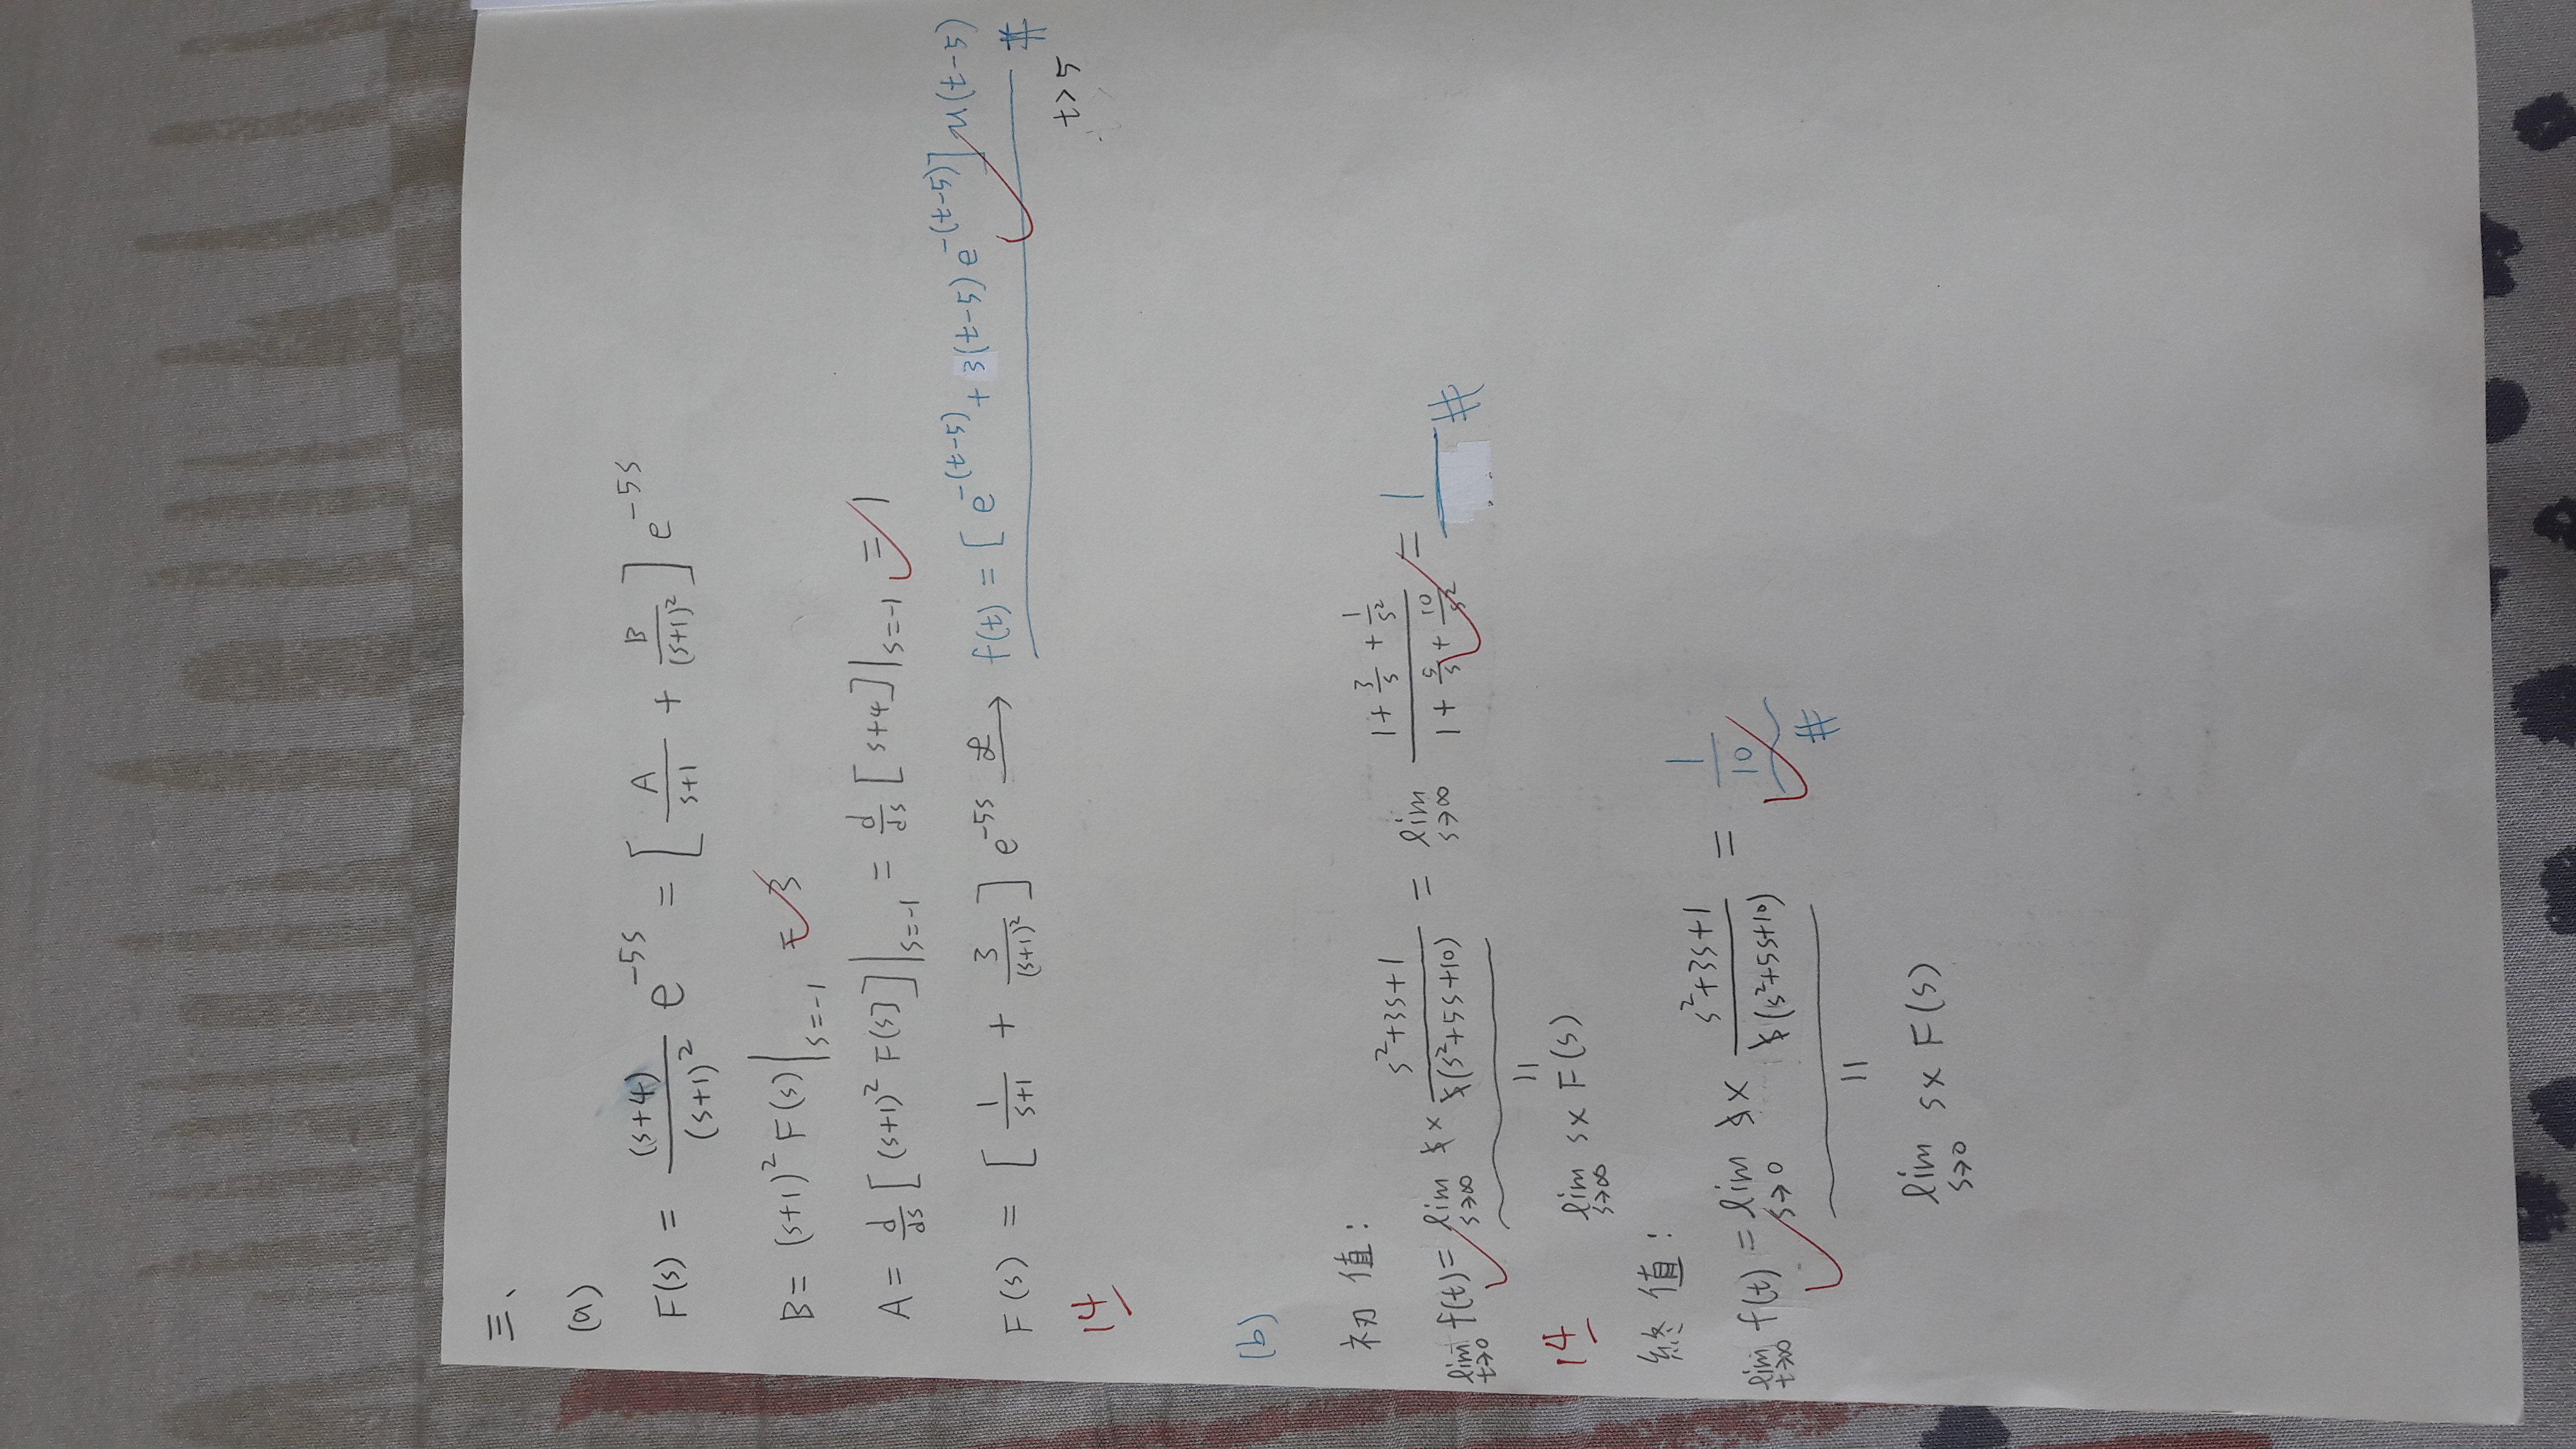 三、
(a)
F(s) = (s+4)/(s+1)² e^{-5s} = [ A/(s+1) + B/(s+1)² ] e^{-5s}
B = (s+1)² F(s)|_{s=-1} = 3
A = d/ds [(s+1)² F(s)]|_{s=-1} = d/ds [s+4]|_{s=-1} = 1
F(s) = [ 1/(s+1) + 3/(s+1)² ] e^{-5s} ℒ→ f(t) = [ e^{-(t-5)} + 3(t-5) e^{-(t-5)} ] u(t-5) #
t>5
14
(b)
初值:
lim_{t→0} f(t) = lim_{s→∞} s × (s²+3s+1)/(s(s²+5s+10)) = lim_{s→∞} (1 + 3/s + 1/s²)/(1 + 5/s + 10/s²) = 1 #
11
14
lim_{s→∞} s× F(s)
終值:
lim_{t→∞} f(t) = lim_{s→0} s × (s²+3s+1)/(s(s²+5s+10)) = 1/10 #
11
lim_{s→0} s× F(s)